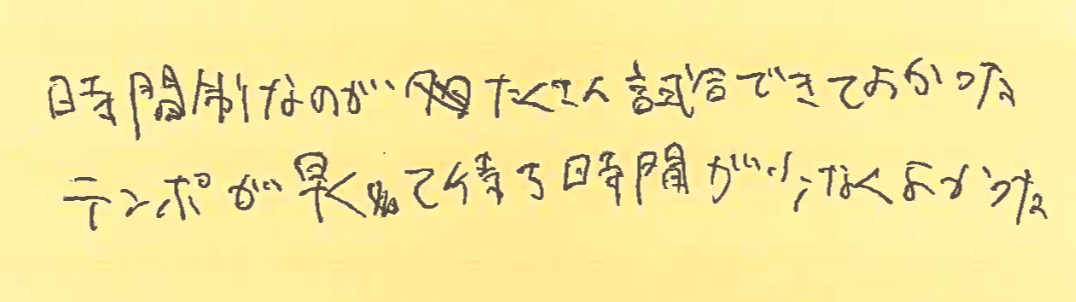 時間制なのがたくさん試合できてよかった
テンポが早くて待ち時間が少なくよかった